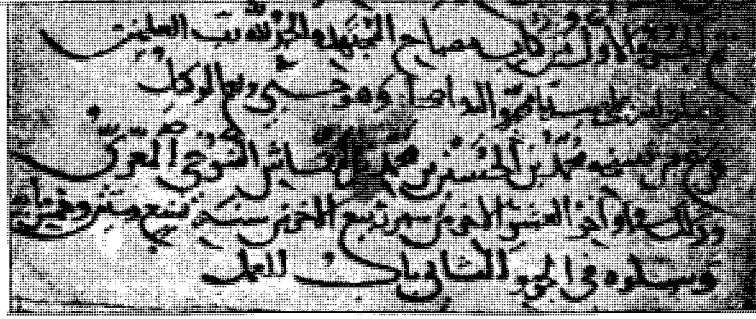 تم الجزؤ الاول من كتاب مصباح المتهجد والحمد لله رب العلمين
وصلواته على سيدنا محمد واله الطاهرين وهو حسبي ونعم الوكيل
وفرغ من نسخه محمد بن الحسين بن محمد بن القاسم التنوخي المعري
وذلك في اواخر العشر الاخير من ربيع الاخر سنة تسع وستين وخمسمائة
ويتلوه في الجزو الثاني باب العمل